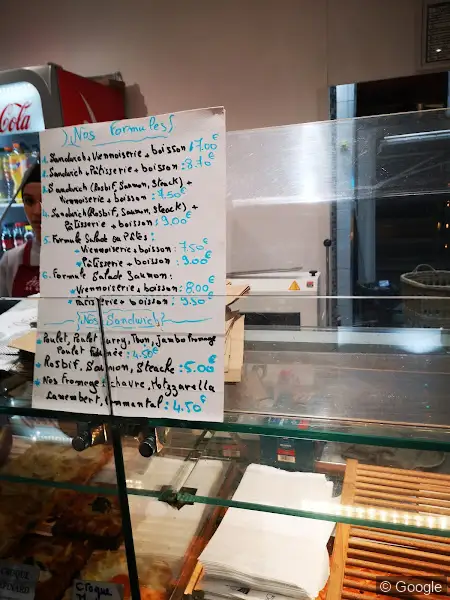 Coca-Cola
Nos Formules
1. Sandwich + Viennoiserie + boisson : 7.00€
2. Sandwich + Pâtisserie + boisson : 8.70€
3. Sandwich (Rosbif, Saumon, Steack) +
Viennoiserie + boisson : 7.50€
4. Sandwich (Rosbif, Saumon, Steack) +
Pâtisserie + boisson : 9.00€
5. Formule Salade ou Pâtes :
* Viennoiserie + boisson : 7.50€
* Pâtisserie + boisson : 9.00€
6. Formule Salade Saumon :
* Viennoiserie + boisson : 8.00€
* Patisserie + boisson : 9.50€
Nos Sandwich
* Poulet, Poulet Curry, Thon, Jambo Fromage
Poulet Fumée : 4.50€
* Rosbif, Saumon, Steack : 5.00€
* Nos Fromage : chèvre, Motzzarella
Camembert, Emmantal : 4.50€
CROQUE
Croque
© Google